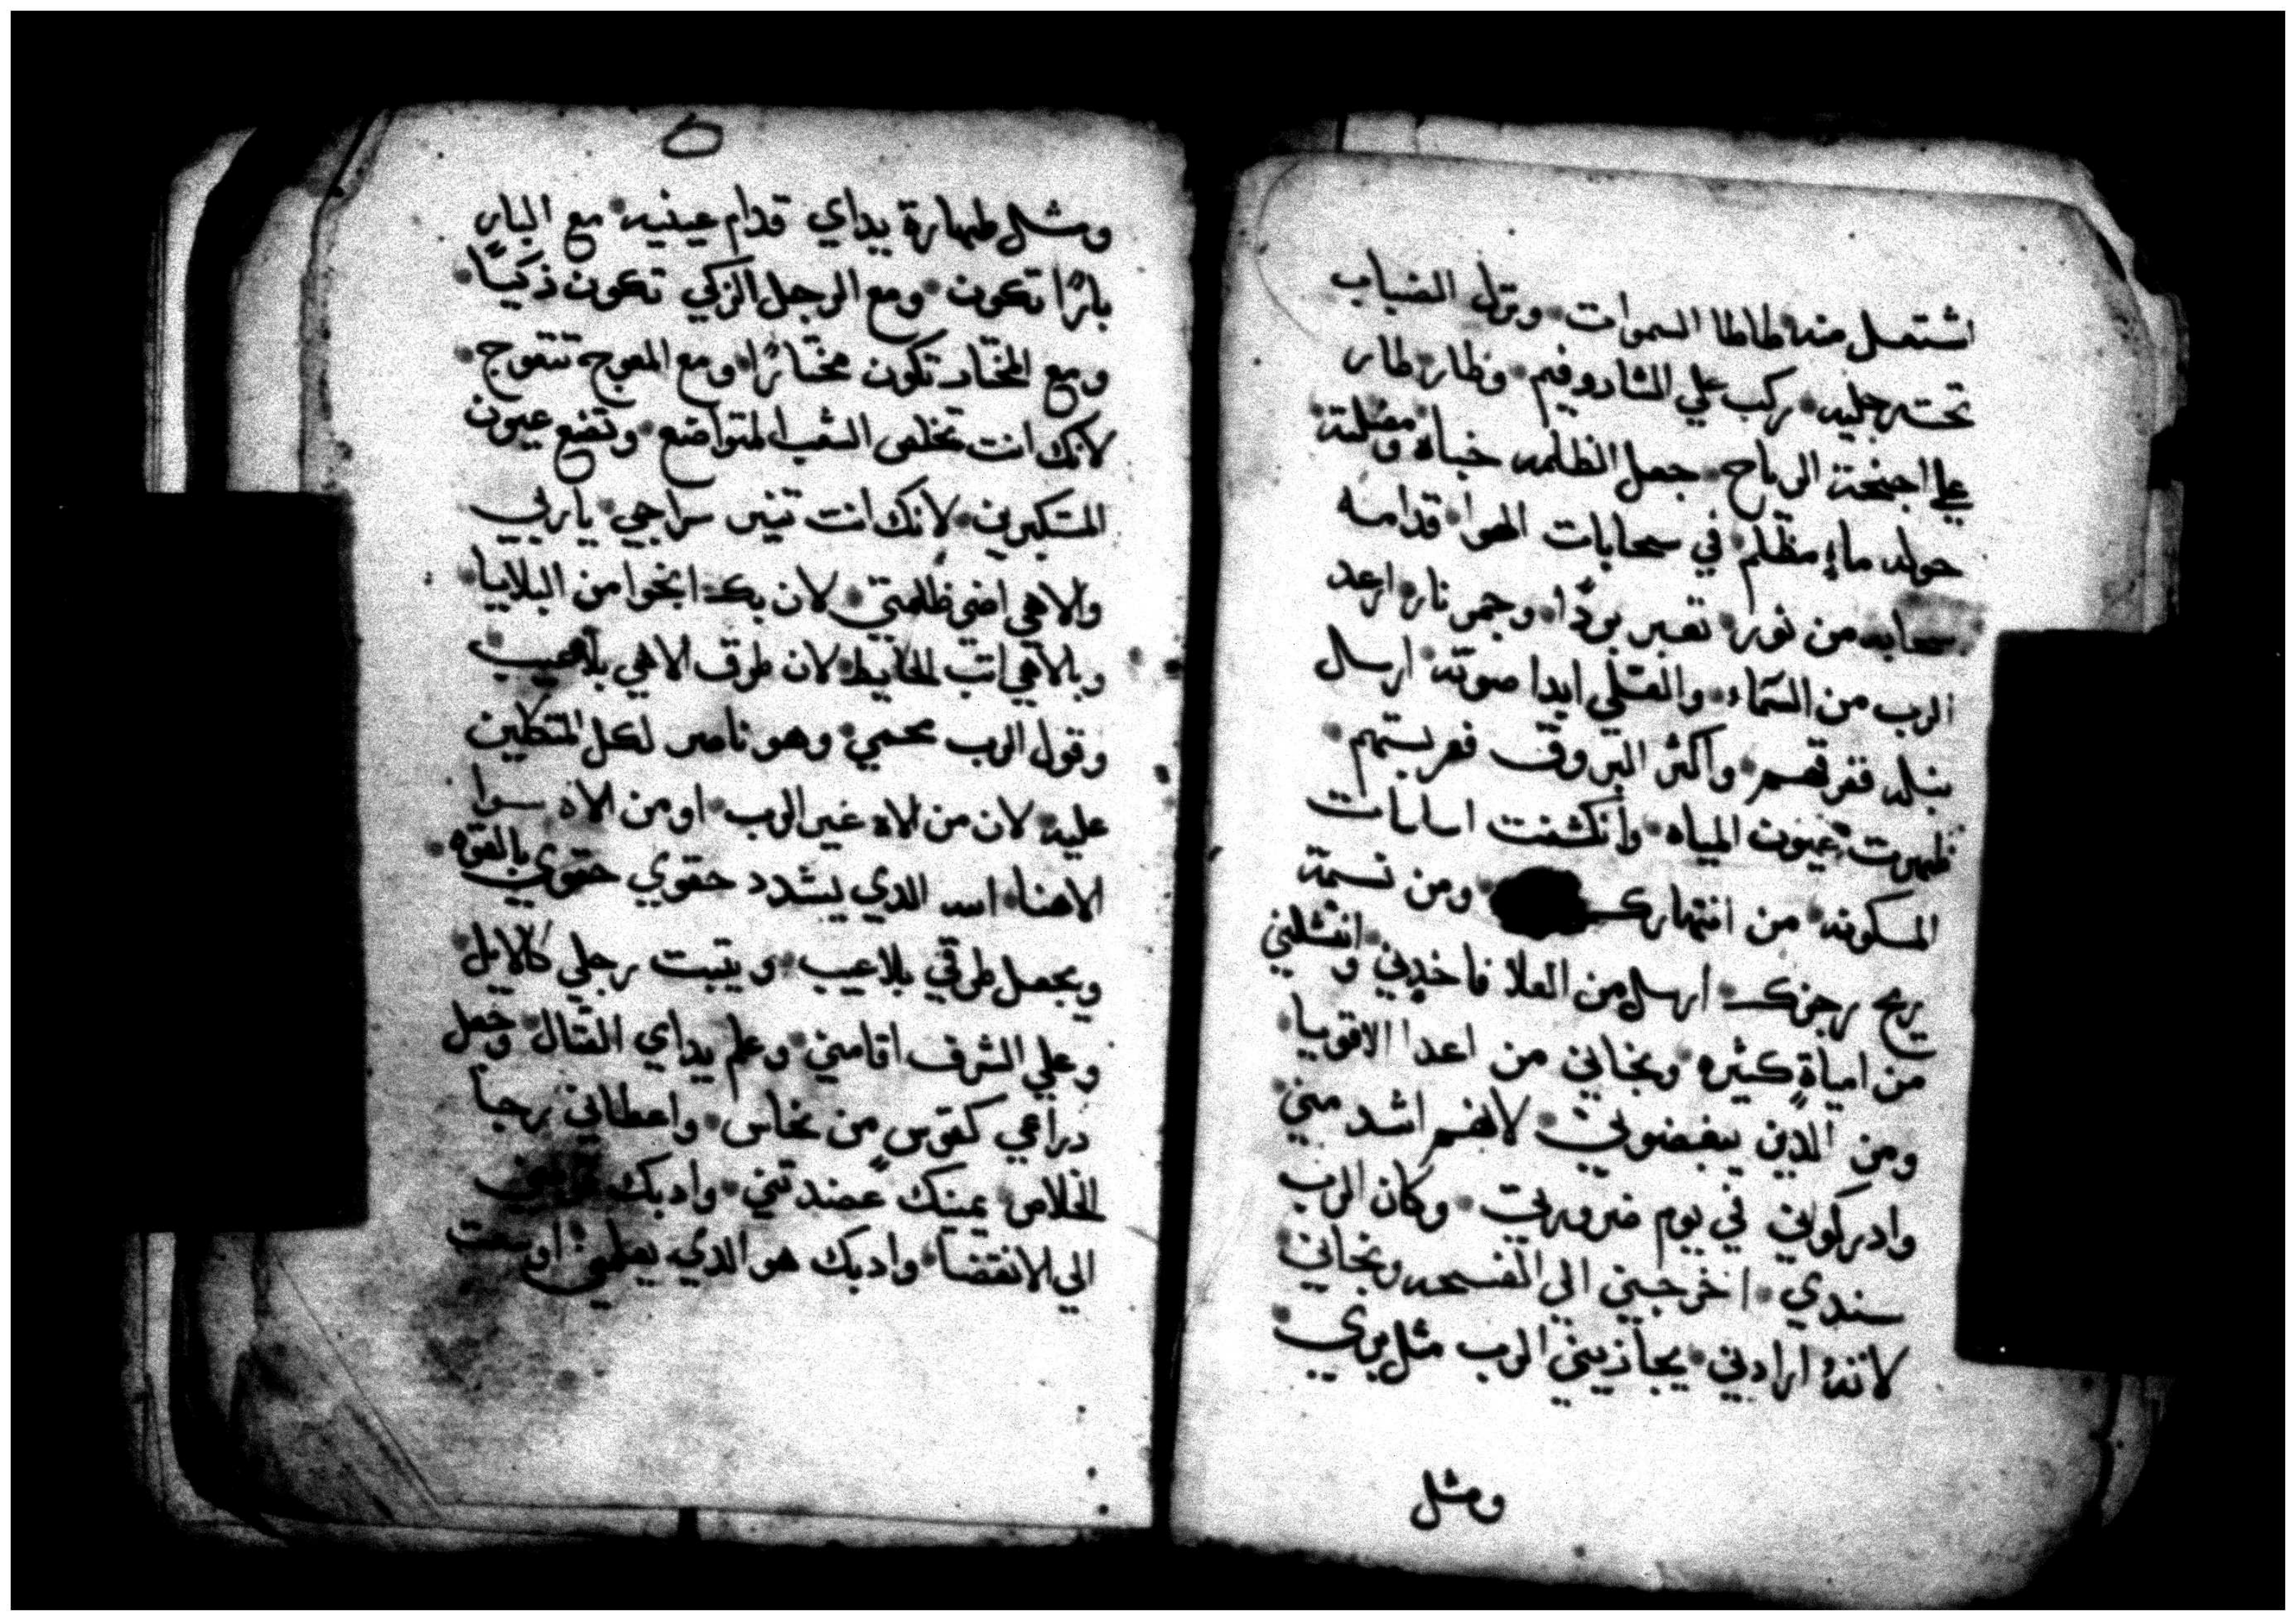 اشتعل منه طاطا السموات ونزل الضباب
تحت رجليه ركب علي الشاروفيم وطار طار
علي اجنحة الرياح جعل الظلمه خباه ومضلته
حوله ماء مظلم في سحابات الهوا قدامه
سحابه من نور تعبر بردًا وجمر نار ارعد
الرب من السماء والعلي ابدا صوته ارسل
نبله ففرقهم واكثر البروق فهربتهم
ظهرت عيون المياه وانكشفت اساسات
المسكونه من انتهارك ومن نسمة
ريح رجزك ارسل من العلا فاخدني وانتشلني
من امياةٍ كثيره ونجاني من اعدا الاقويا
ومن الدين يبغضوني لانهم اشد مني
وادركوني في يوم ضرورتي وكان الرب
سندي اخرجني الي الفسحه ونجاني
لاننهُ ارادني يجازيني الرب مثل بري
ومثل
ومثل طهارة يداي قدام عينيه مع البار
بارًا تكون ومع الرجل الزكي تكون زكيًا
ومع المختار تكون مختارًا ومع المعوج تتعوج
لانك انت تخلص الشعب المتواضع وتضع عيون
المتكبرين لانك انت تنير سراجي ياربي
والاهي اضي ظلمتي لان بك انجوا من البلايا
وبالاهي اتب الحايط لان طرق الاهي بلاعيب
وقول الرب محمي وهو ناصر لكل المتكلين
عليه لان من الاه غير الرب اومن الاه سوا
الاهنا الله الدي يشدد حقوي حقوي بالقوه
ويجعل طرقي بلاعيب ويتبت رجلي كالايل
وعلي الشرف اقامني وعلم يداي القتال وجعل
دراعي كقوس من نحاس واعطاني رجا
الخلاص يمينك عضدتني وادبك
الي الانقضا وادبك هو الدي يعلمني اوسعت